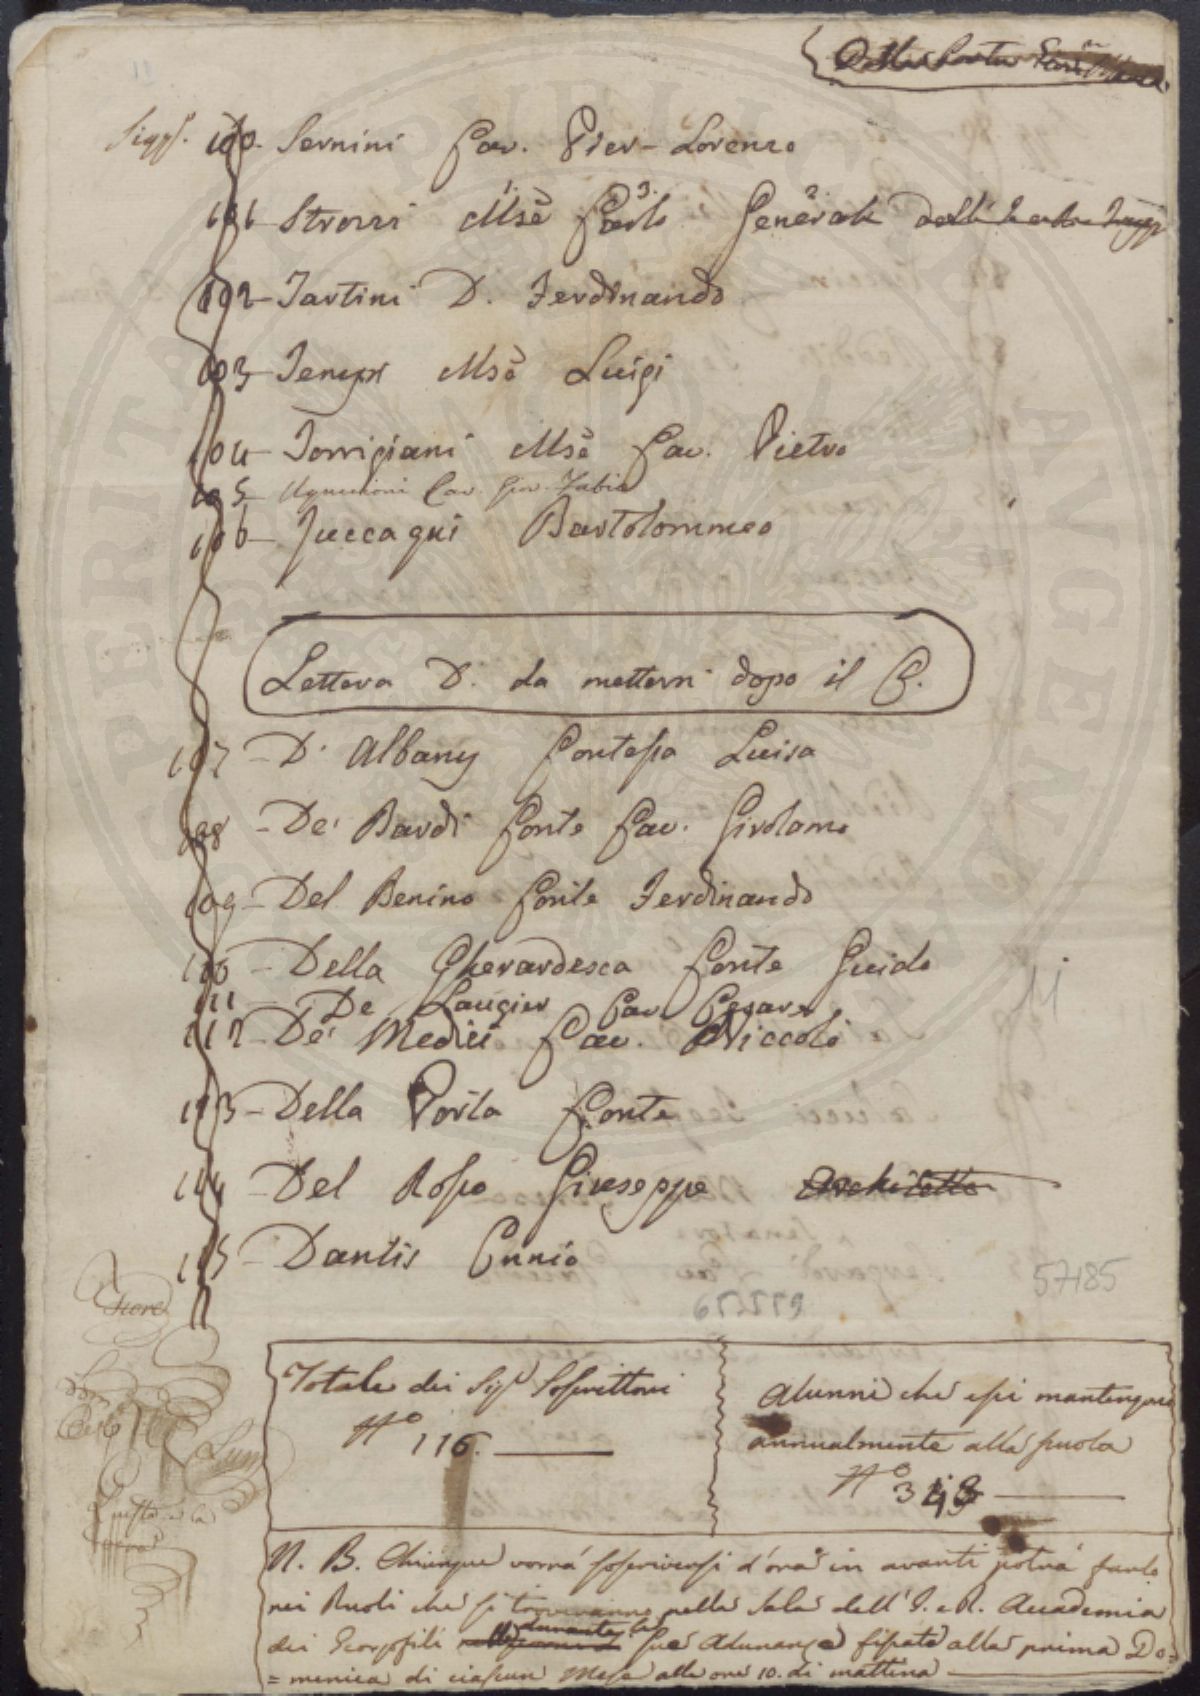 Della Porta
Sigg.ri 100. Sernini Cav. Pier-Lorenzo
101 Strozzi Mse Carlo Generale
1. 3. 2.
102 - Tartini D. Ferdinando
103 - Tempi Mse Luigi
104 - Torrigiani Mse Cav. Pietro
105 - Uguccioni Cav. Gio. Fabio
106 - Zuccagni Bartolommeo
Lettera D. da mettersi dopo il C.
107 - D'Albany Contessa Luisa
108 - De' Bardi Conte Cav. Girolamo
109 - Del Benino Conte Ferdinando
110 - Della Gherardesca Conte Guido
111 De Laugier Cav. Cesare
112 - De' Medici Cav. Niccolò
113 - Della Porta Conte
114 - Del Rosso Giuseppe Architetto
115 - Dantis Ennio
11
57185
Totale dei Sigri Soscrittori
No 116.
Alunni che essi mantengono
annualmente alla scuola
No 348
N. B. Chiunque vorrà soscriversi d'ora in avanti potrà farlo
nei Ruoli che si troveranno nella Sala dell'I. e R. Accademia
durante le
dei Georgofili sue Adunanze fissate alla prima Do=
=menica di ciascun Mese alle ore 10. di mattina